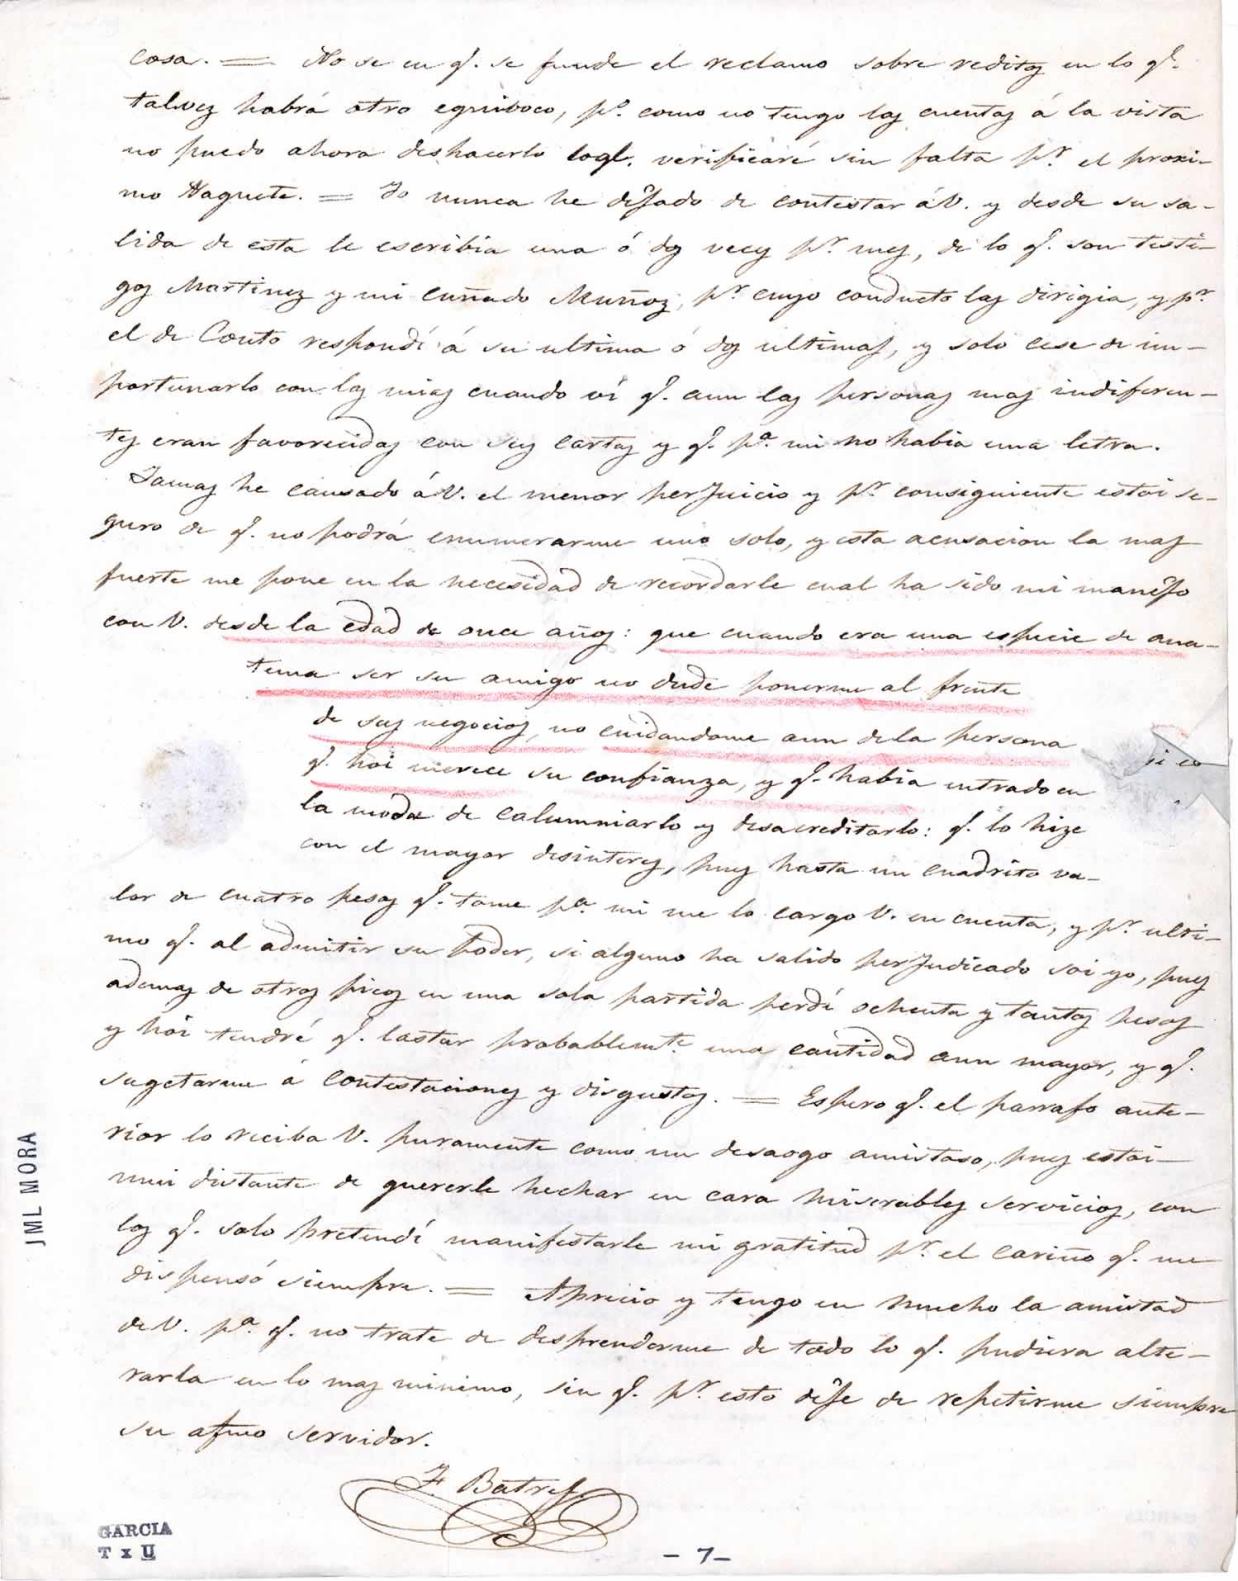 cosa. = No se en q.e se funde el reclamo sobre reditos en lo q.e
talvez habrá otro equivoco, p.o como no tengo las cuentas á la vista
no puedo ahora deshacerlo loq.e verificaré sin falta p.r el proxi-
mo Paquete. = Yo nunca he dejado de contestar á V. y desde su sa-
lida de esta le escribia una ó dos veces p.r mes, de lo q.e son testi-
gos Martinez y mi cuñado Muñoz, p.r cuyo conducto las dirigia, y p.r
el de Couto respondí á su ultima ó dos ultimas, y solo cese de im-
portunarlo con las mias cuando ví q.e aun las personas mas indiferen-
tes eran favorecidas con sus cartas y q.e p.a mi no habia una letra.
Jamas he causado á V. el menor perJuicio y p.r consiguiente estoi se-
guro de q.e no podrá enumerarme uno solo, y esta acusacion la mas
fuerte me pone en la necesidad de recordarle cual ha sido mi manejo
con V. desde la edad de once años: que cuando era una especie de ana-
tema ser su amigo no dude ponerme al frente
de sus negocios, no cuidandome aun de la persona
q.e hoi merece su confianza, y q.e habia entrado en
la moda de calumniarlo y desacreditarlo: q.e lo hize
con el mayor desinteres, pues hasta un cuadrito va-
lor de cuatro pesos q.e tome p.a mi me lo cargo V. en cuenta, y p.r ulti-
mo q.e al admitir su Poder, si alguno ha salido perJudicado soi yo, pues
ademas de otros picos en una sola partida perdí ochenta y tantos pesos
y hoi tendré q.e lastar probablem.te una cantidad aun mayor, y q.e
sugetarme á contestaciones y disgustos. = Espero q.e el parrafo ante-
rior lo reciba V. puramente como un desaogo amistoso, pues estoi
mui distante de quererle hechar en cara miserables servicios, con
los q.e solo pretendí manifestarle mi gratitud p.r el cariño q.e me
dispensó siempre. = Aprecio y tengo en mucho la amistad
de V. p.a q.e no trate de desprenderme de todo lo q.e pudiera alte-
rarla en lo mas minimo, sin q.e p.r esto deje de repetirme siempre
su afmo servidor.
F Batres
JML MORA
GARCIA
T x U
- 7 -